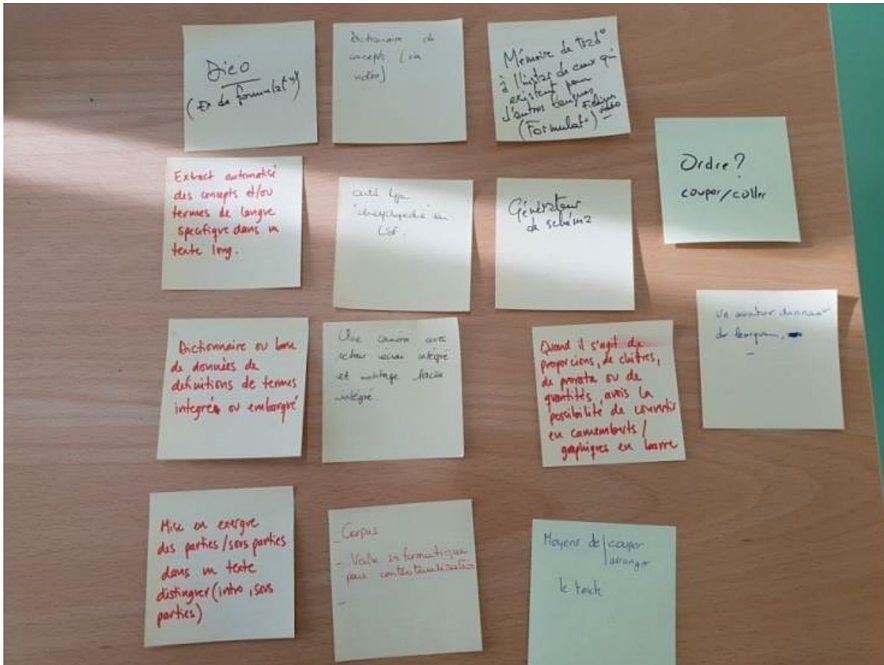 Dico
(Ex de formulat°)
Dictionnaire de
concepts (via
vidéo)
Mémoire de trad°
à l'instar de ceux qui
existent pour
d'autres langues
(Formulat°) vidéo
Ordre?
couper/coller
Extract automatisé
des concepts et/ou
termes de langue
specifique dans un
texte long.
outil type
"encyclopédie" en
LSF.
Générateur
de schéma
Un avatar
de
Dictionnaire ou base
de données de
definitions de termes
integrée ou embarqué
Une caméra avec
retour écran intégré
et montage facile
intégré.
Quand il s'agit de
proporcions, de chifres,
de prorata ou de
quantités, avois la
possibilité de convertir
en camemberts/
graphiques en barre
Mise en exergue
des parties/sous parties
dans un texte
distinguer (intro, sous
parties)
- Corpus
- informatique
pour contextualisation
-
Moyens de couper
arranger
le texte